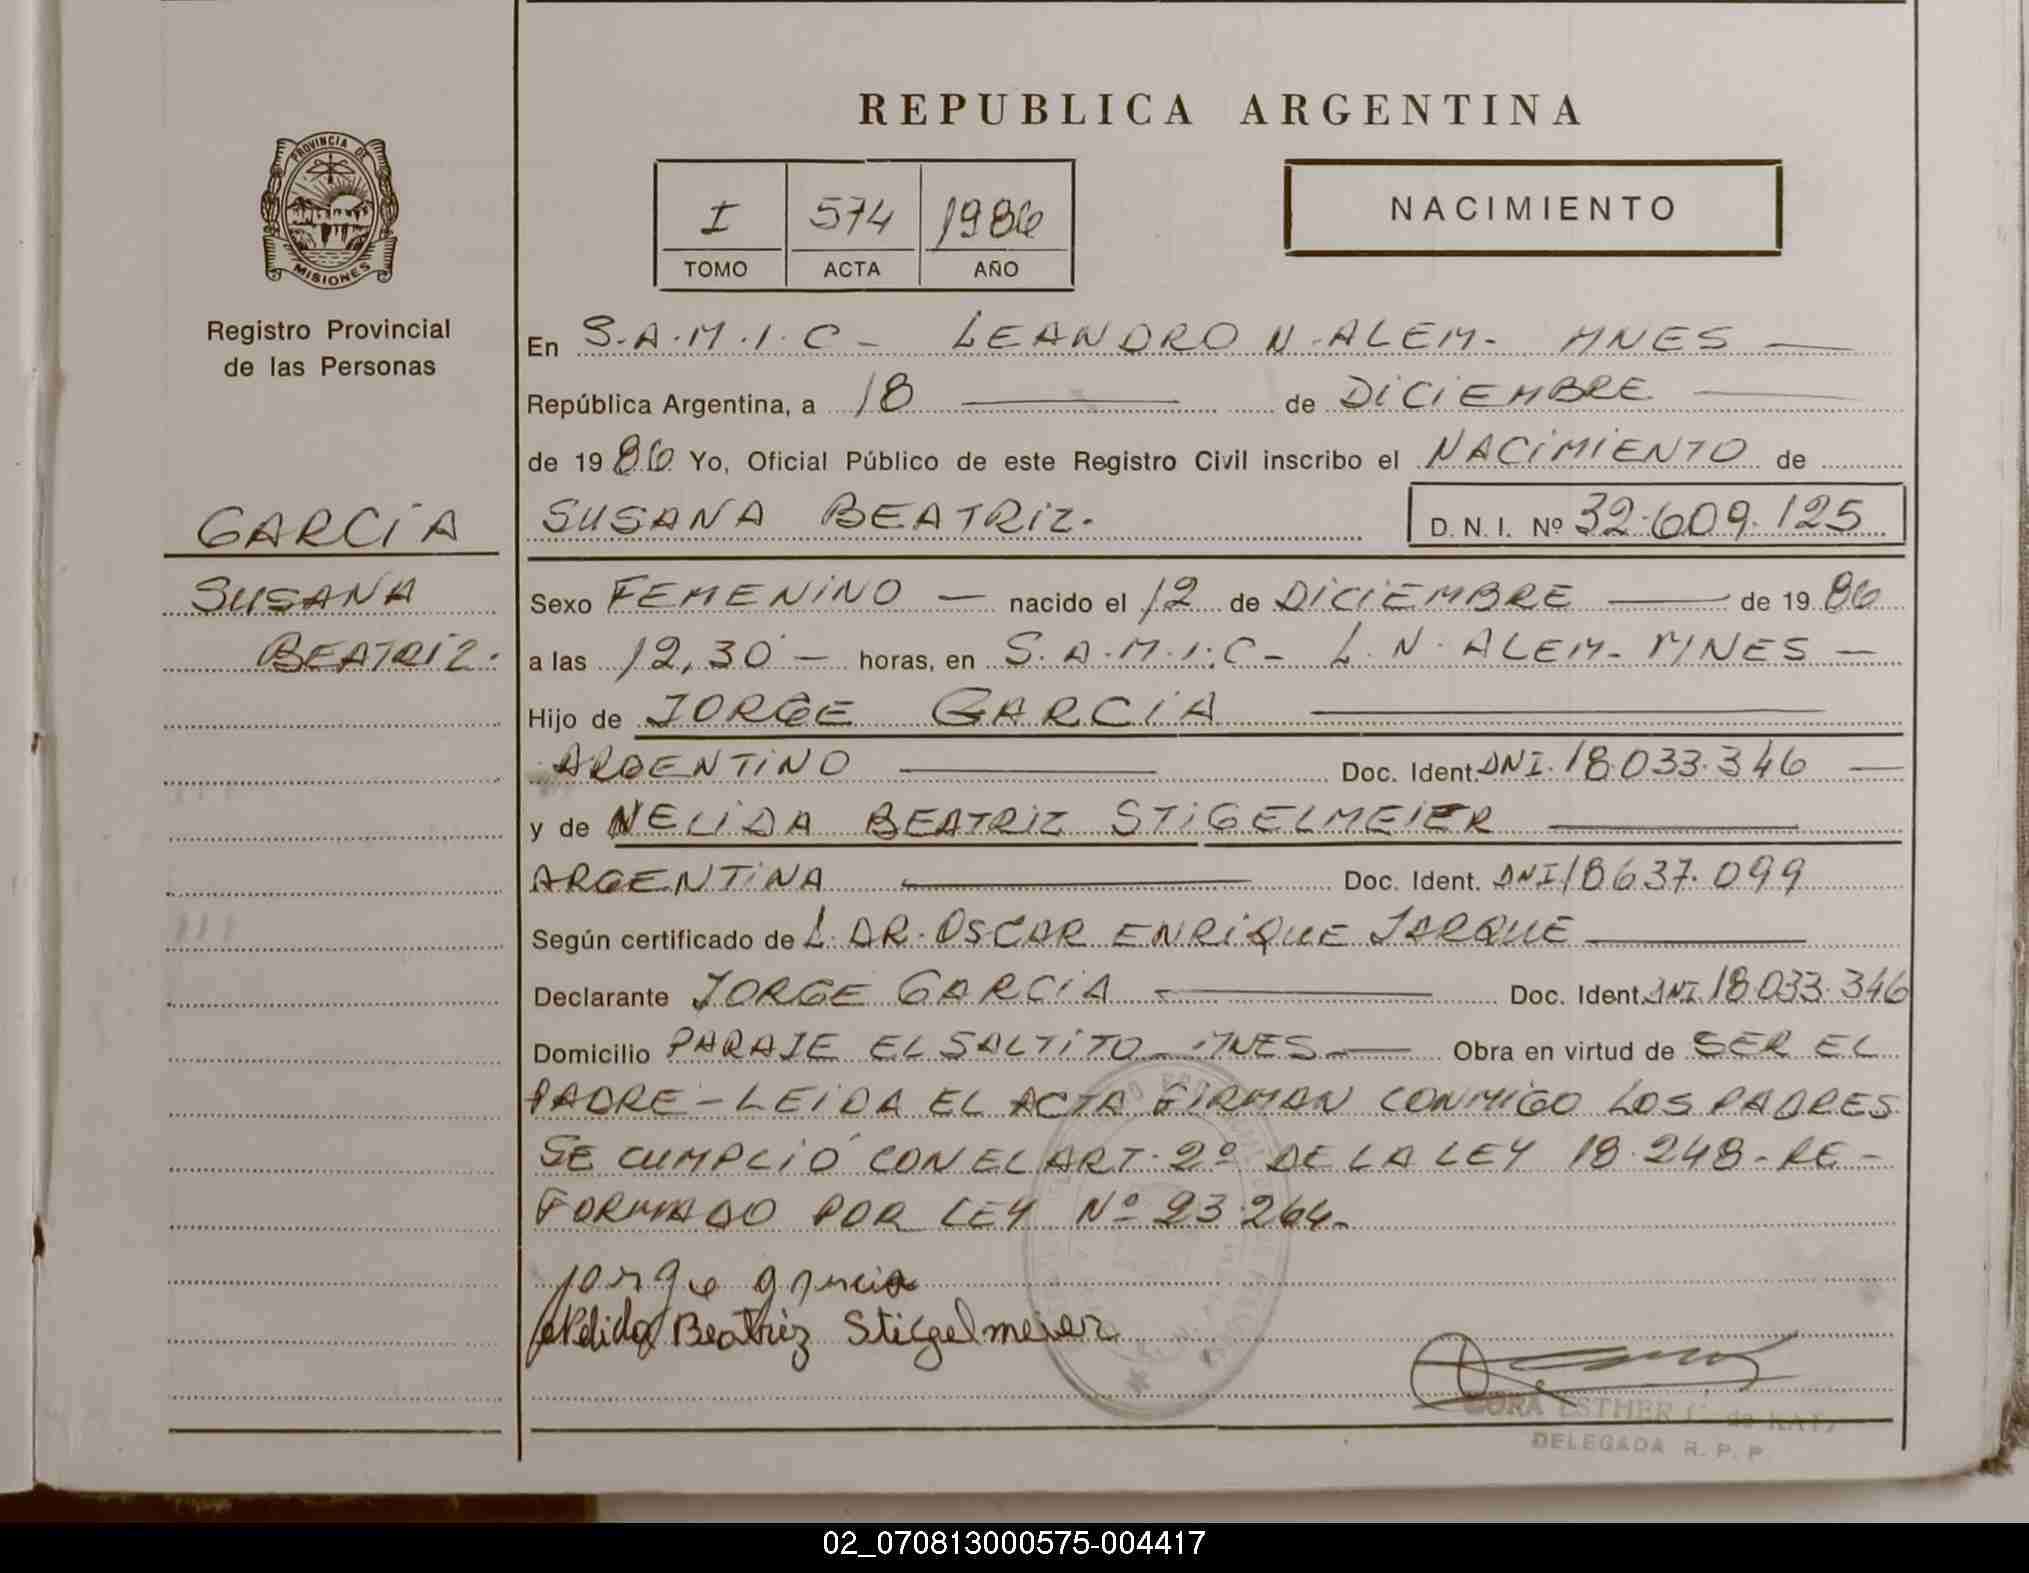 REPUBLICA ARGENTINA
PROVINCIA DE
MISIONES
Registro Provincial
de las Personas
I 574 1986
TOMO ACTA AÑO
NACIMIENTO
En S.A.M.I.C - LEANDRO N. ALEM - MNES
República Argentina, a 18 de DICIEMBRE
de 1986 Yo, Oficial Público de este Registro Civil inscribo el NACIMIENTO de
SUSANA BEATRIZ. D. N. I. Nº 32.609.125
GARCÍA
SUSANA
BEATRIZ.
Sexo FEMENINO - nacido el 12 de DICIEMBRE de 1986
a las 12,30 - horas, en S.A.M.I.C - L. N. ALEM - MNES -
Hijo de JORGE GARCIA
ARGENTINO Doc. Ident. DNI. 18.033.346
y de NELIDA BEATRIZ STIGELMEIER
ARGENTINA Doc. Ident. DNI 18637.099
Según certificado de L. DR. OSCAR ENRIQUE JARQUE
Declarante JORGE GARCIA Doc. Ident. DNI. 18.033.346
Domicilio PARAJE EL SALTITO - MNES - Obra en virtud de SER EL
PADRE - LEIDA EL ACTA FIRMAN CONMIGO LOS PADRES
SE CUMPLIÓ CON EL ART. 2º DE LA LEY 18.248 - RE-
FORMADO POR LEY Nº 23.264.
jorge garcia
Nelida Beatriz Stigelmeier
CORA ESTHER
DELEGADA R. P. P.
02_070813000575-004417